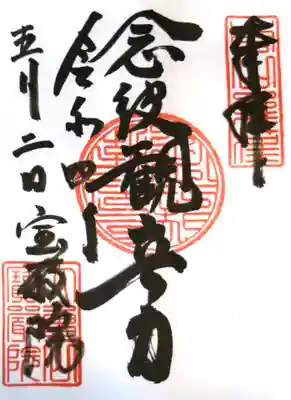 奉拝
念彼觀音力
令和四年
五月二日
宝厳院